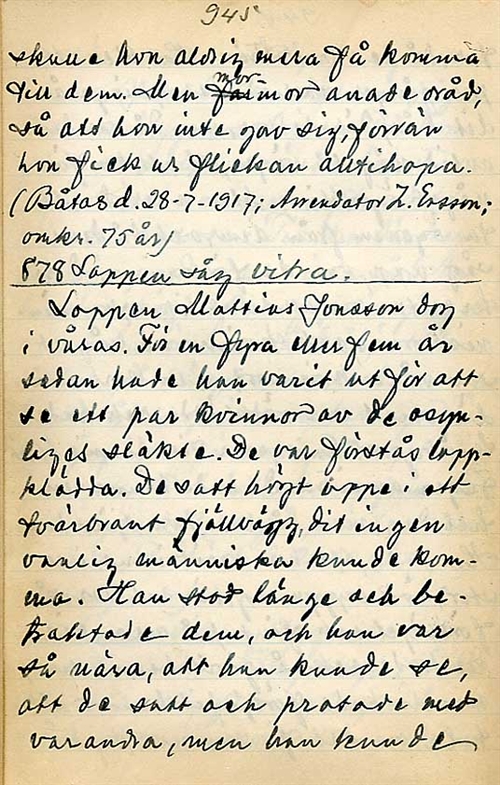 945
skulle hon aldrig mera få komma
till dem. Men far mor- mor anade oråd,
så att hon inte gav sig, förrän
hon fick ur flickan alltihopa.
(Båtas d. 28-7-1917; Arrendator Z. Ersson;
omkr. 75 år)
878 Lappen såg vitra.
Lappen Mattias Jonsson dog
i våras. För en fyra eller fem år
sedan hade han varit ut för att
se ett par kvinnor av de osyn-
ligas släkte. De var förstås lapp-
klädda. De satt högt uppe i ett
tvärbrant fjällvägg, dit ingen
vanlig människa kunde kom-
ma. Han stod länge och be-
traktade dem, och han var
så nära, att han kunde se,
att de satt och pratade med
varandra, men han kunde